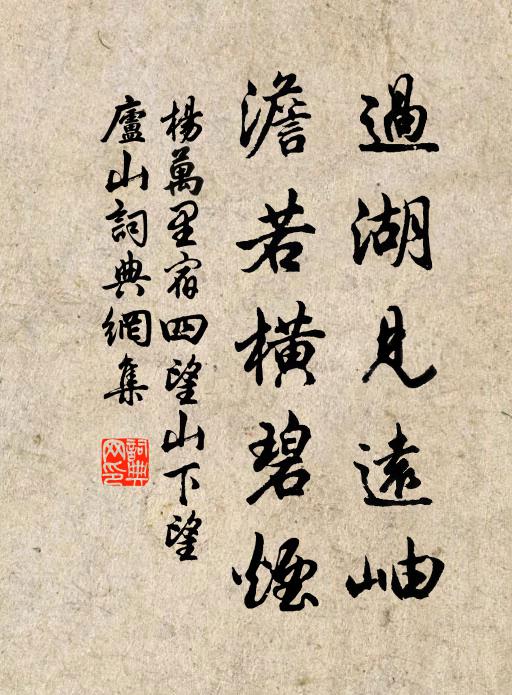 過湖見遠岫
澹若橫碧煙
楊萬里宿四望山下望
廬山詞典網集
詞典
网印